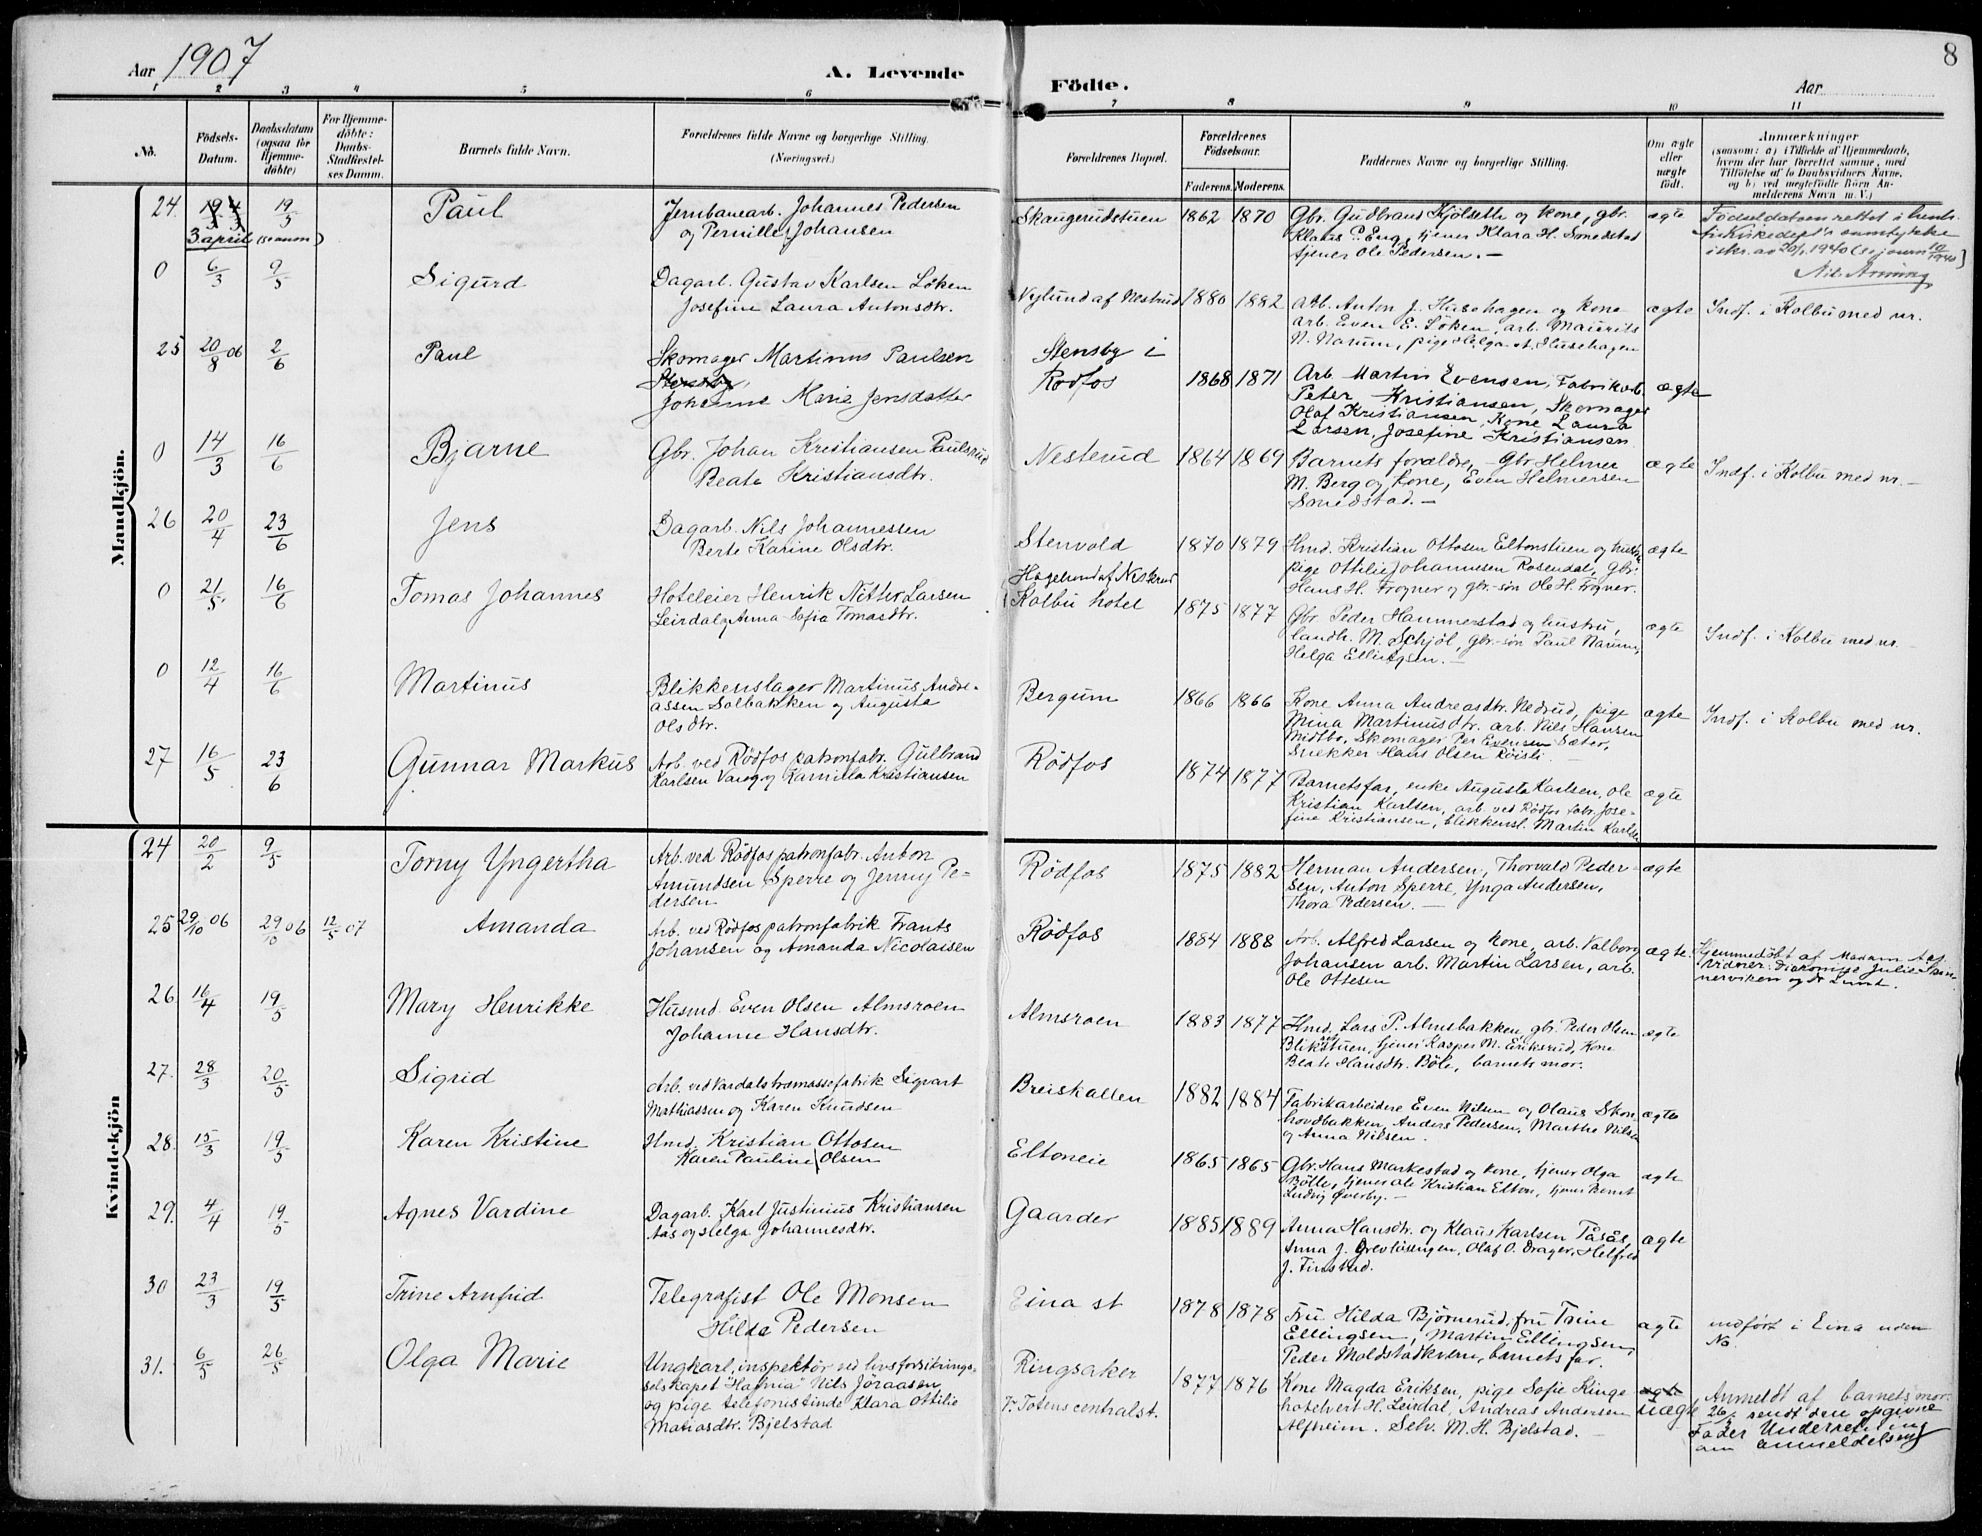 Aar 1907
A. Levende
Födte.
Aar
8
1 2 3 4 5 6 7 8 9 10 11
No.
Födsels-Datum.
Daabsdatum (ogsaa for Hjemme-döbte)
For Hjemme-döbte: Daabs-Stadfæstel-ses Datum.
Barnets fulde Navn.
Forældrenes fulde Navne og borgerlige Stilling.
(Næringsvei.)
Forældrenes Bopæl.
Forældrenes Födselsaar.
Faderens. Moderens.
Faddernes Navne og borgerlige Stilling.
Om ægte eller uægte födt.
Anmærkninger
(saasom: a) i Tilfælde af Hjemmedaab,
hvem der har forrettet samme, med
Tilföielse af to Daabsvidners Navne,
og b) ved uægtefödte Börn An-
melderens Navn m. V.)
Mandkjön.
24. 3 april 19/5 Paul
Jernbanearb. Johannes Pedersen
og Pernille Johansen
Skaugerudstuen 1862 1870
Gbr. Gudbrand Kjölseth og kone, gbr.
Klaus P. Eng, tjener Klara H. Smedstad
tjener Ole Pedersen. —
ægte
Födseldatoen rettet i henh.
til Kirkedept's samtykke
i skr. av 20/1 1940 (se journ 10/1940)
0 6/3 9/5 Sigurd
Dagarb. Gustav Karlsen Löken
Josefine Laura Antonsdtr.
Nylund af Nestrud 1880 1882
Arb. Anton J. Husehagen og kone
arb. Even E. Löken, arb. Maurits
N. Narum, pige Helga A. Husehagen
ægte
Indf. i Kolbu med nr.
25 20/8 06 2/6 Paul
Skomager Martinus Paulsen
Stensby
Johanne Marie Jensdatter
Stensby i
Rödfos 1868 1871
Arb. Martin Evensen, Fabrikarb.
Peter Kristiansen, Skomager
Olaf Kristiansen, Kone Laura
Larsen, Josefine Kristiansen
ægte
0 14/3 16/6 Bjarne
Gbr. Johan Kristiansen Paulsrud
Beate Kristiansdtr.
Nesterud 1864 1869
Barnets forældre, Gbr Helmer
M. Berg og kone, Even Helmersen
Smedstad. —
ægte
Indf. i Kolbu med nr. —
26 20/4 23/6 Jens
Dagarb. Nils Johannessen
Berte Karine Olsdtr.
Stenvold 1870 1879
Hmd. Kristian Ottosen Eltonstuen og hustru
pige Ottilie Johannesen Rosendal, gbr.
Hans H. Frogner og gbr.-sön Ole H. Frogner.
ægte
0 21/5 16/6 Tomas Johannes
Hoteleier Henrik Nitter Larsen
Leirdal og Anna Sofia Tomasdtr.
Hagelund af Nesterud
Kolbu hotel 1875 1877
Gbr. Peder Hammerstad og hustru,
landh. M. Schjöl, gbr.-sön Paul Narum,
Helga Ellingsen. —
ægte
Indf. i Kolbu med nr. —
0 12/4 16/6 Martinus
Blikkenslager Martinus Andre-
assen Solbakken og Augusta
Olsdtr.
Bergum 1866 1866
Kone Anna Andreasdtr. Nedrud, pige
Mina Martinusdtr. arb. Nils Hansen
Midtbo, Skomager Per Evensen Sæter,
Snekker Hans Olsen Röisli. —
ægte
Indf. i Kolbu med nr.
27 16/5 23/6 Gunnar Markus
Arb. ved Rödfos patronfabr. Gulbrand
Karlsen Vang og Kamilla Kristiansen
Rödfos 1874 1877
Barnets far, enke Augusta Karlsen, Ole
Kristian Karlsen, arb. ved Rödfos fabr. Jose-
fine Kristiansen, blikkensl. Martin Karlsen
ægte
Kvindekjön
24 20/2 9/5 Torny Yngertha
Arb. ved Rödfos patronfabr. Anton
Amundsen Sperre og Jenny Pe-
dersen
Rödfos 1875 1882
Herman Andersen, Thorvald Peder-
sen, Anton Sperre, Ynga Andersen,
Thora Pedersen. —
ægte
25 29/10 06 29/10 06 12/5 07 Amanda
Arb. ved Rödfos patronfabrik Frants
Johansen og Amanda Nicolaisen
Rödfos 1884 1888
Arb. Alfred Larsen og kone, arb. Valborg
Johansen arb. Martin Larsen, arb.
Ole Ottesen
ægte.
Hjemmedöbt af Madam Aas
Vidner: Diakonisse Julie
nerviken og Dr Lunt.
26 16/4 19/5 Mary Henrikke
Husmd. Even Olsen Almsroen
Johanne Hansdtr.
Almsroen 1883 1877
Hmd. Lars P. Almsbakken, gbr. Peder Olsen
Blikstuen, tjener Kasper M. Eriksrud, Kone
Beate Hansdtr. Böle, barnets mor.
ægte
27. 28/3 20/5 Sigrid
Arb. ved Vardals træmassefabrik Sigvart
Mathiassen og Karen Knudsen
Breiskallen 1882 1884
Fabrikarbeidere Even Nilsen og Olaus Skon-
hovdbakken, Anders Pedersen, Marthe Nilsen
og Anna Nilsen.
ægte
28. 15/3 19/5 Karen Kristine
Hmd. Kristian Ottosen
Karen Pauline Olsen
Eltoneie 1865 1865
Gbr. Hans Markestad og kone, tjener Olga
Bölle, tjener Ole Kristian Elton, tjener Bernt
Ludvig Överby. —
ægte
29. 4/4 19/5 Agnes Vardine
Dagarb. Karl Justinius Kristiansen
Aas og Helga Johannesdtr.
Gaarder 1885 1889
Anna Hansdtr. og Klaus Karlsen Tåsås,
Anna J. Grevlösengen, Olaf O. Drager, Helfred
J. Finstad.
ægte
30 23/3 19/5 Trine Arnfrid
Telegrafist Ole Monsen
Hilda Pedersen
Eina st 1878 1878
Fru Hilda Björnerud, fru Trine
Ellingsen, Martin Ellingsen,
Peder Moldstadkvern, barnets far.
ægte
indfört i Eina uden
No.
31. 6/5 26/5 Olga Marie
Ungkarl, inspektör ved livsforsikrings-
selskapet "Hafnia" Nils Jöraasen
og pige telefonistinde Klara Ottilie
Matiasdtr. Bjelstad
Ringsaker
V. Totens centralst. 1877 1876
Kone Magda Eriksen, pige Sofie Ringe
hotelvert H. Leirdal, Andreas Andersen
Alfheim. Selv. M. H. Bjelstad. —
ægte
uægte
Anmeldt af barnets mor.
26/5 sendt den opgivne
Fader Underretning
om anmeldelsen